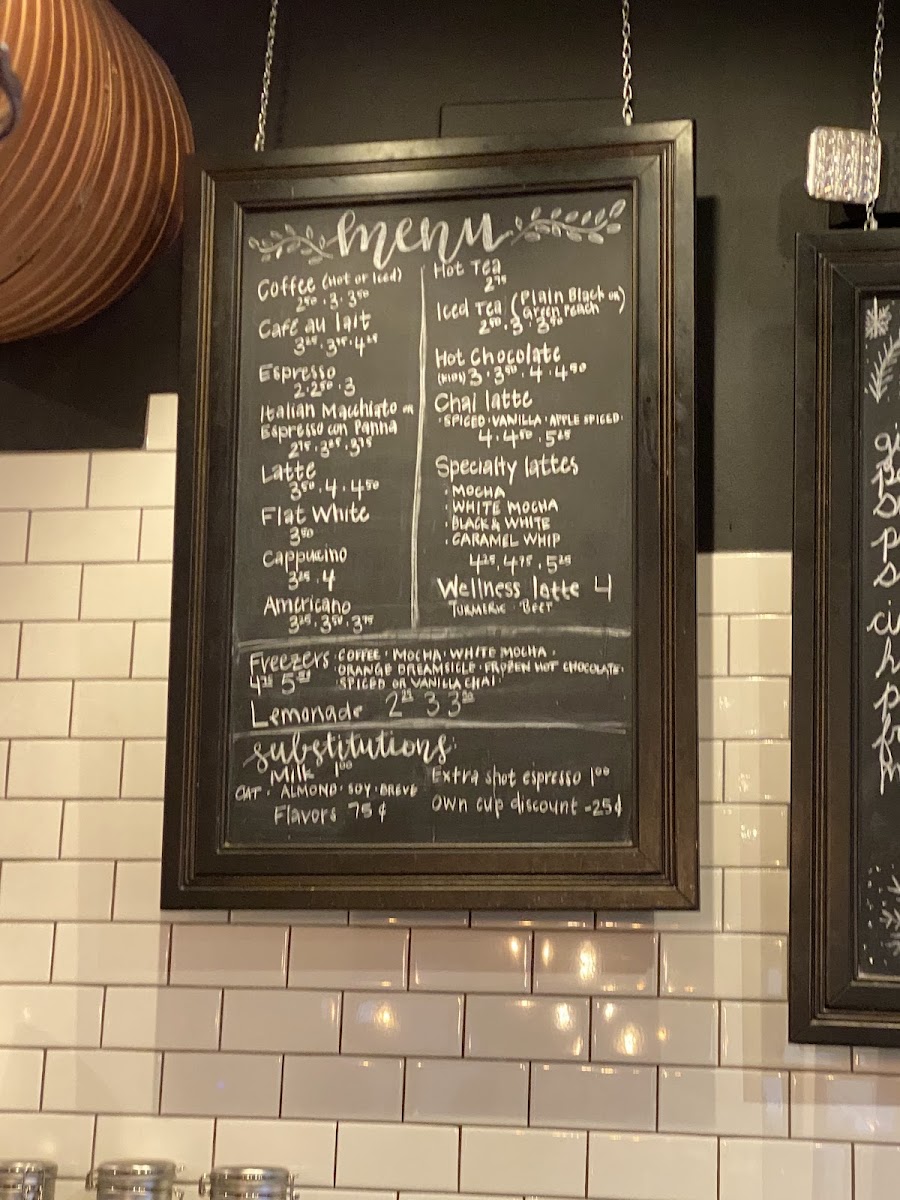 menu
Coffee (Hot or Iced)
2⁵⁰ · 3 · 3⁵⁰
Café au lait
3²⁵ · 3⁷⁵ · 4²⁵
Espresso
2 · 2⁵⁰ · 3
Italian Macchiato or
Espresso con Panna
2⁷⁵ · 3²⁵ · 3⁷⁵
Latte
3⁵⁰ · 4 · 4⁵⁰
Flat White
3⁵⁰
Cappucino
3²⁵ · 4
Americano
3²⁵ · 3⁵⁰ · 3⁷⁵
Hot Tea
2⁷⁵
Iced Tea (Plain Black or)
Green Peach
2⁵⁰ · 3 · 3⁵⁰
Hot Chocolate
(KIDS) 3 · 3⁵⁰ · 4 · 4⁵⁰
Chai latte
· SPICED · VANILLA · APPLE SPICED ·
4 · 4⁵⁰ · 5²⁵
Specialty lattes
· MOCHA
· WHITE MOCHA
· BLACK & WHITE
· CARAMEL WHIP
4²⁵ · 4⁷⁵ · 5²⁵
Wellness latte 4
TURMERIC · BEET
Freezers · COFFEE · MOCHA · WHITE MOCHA ·
ORANGE DREAMSICLE · FROZEN HOT CHOCOLATE ·
SPICED OR VANILLA CHAI
Lemonade 2²⁵ 3 3⁵⁰
substitutions:
Milk 1⁰⁰
OAT · ALMOND · SOY · BREVE
Flavors 75¢
Extra shot espresso 1⁰⁰
Own cup discount -25¢